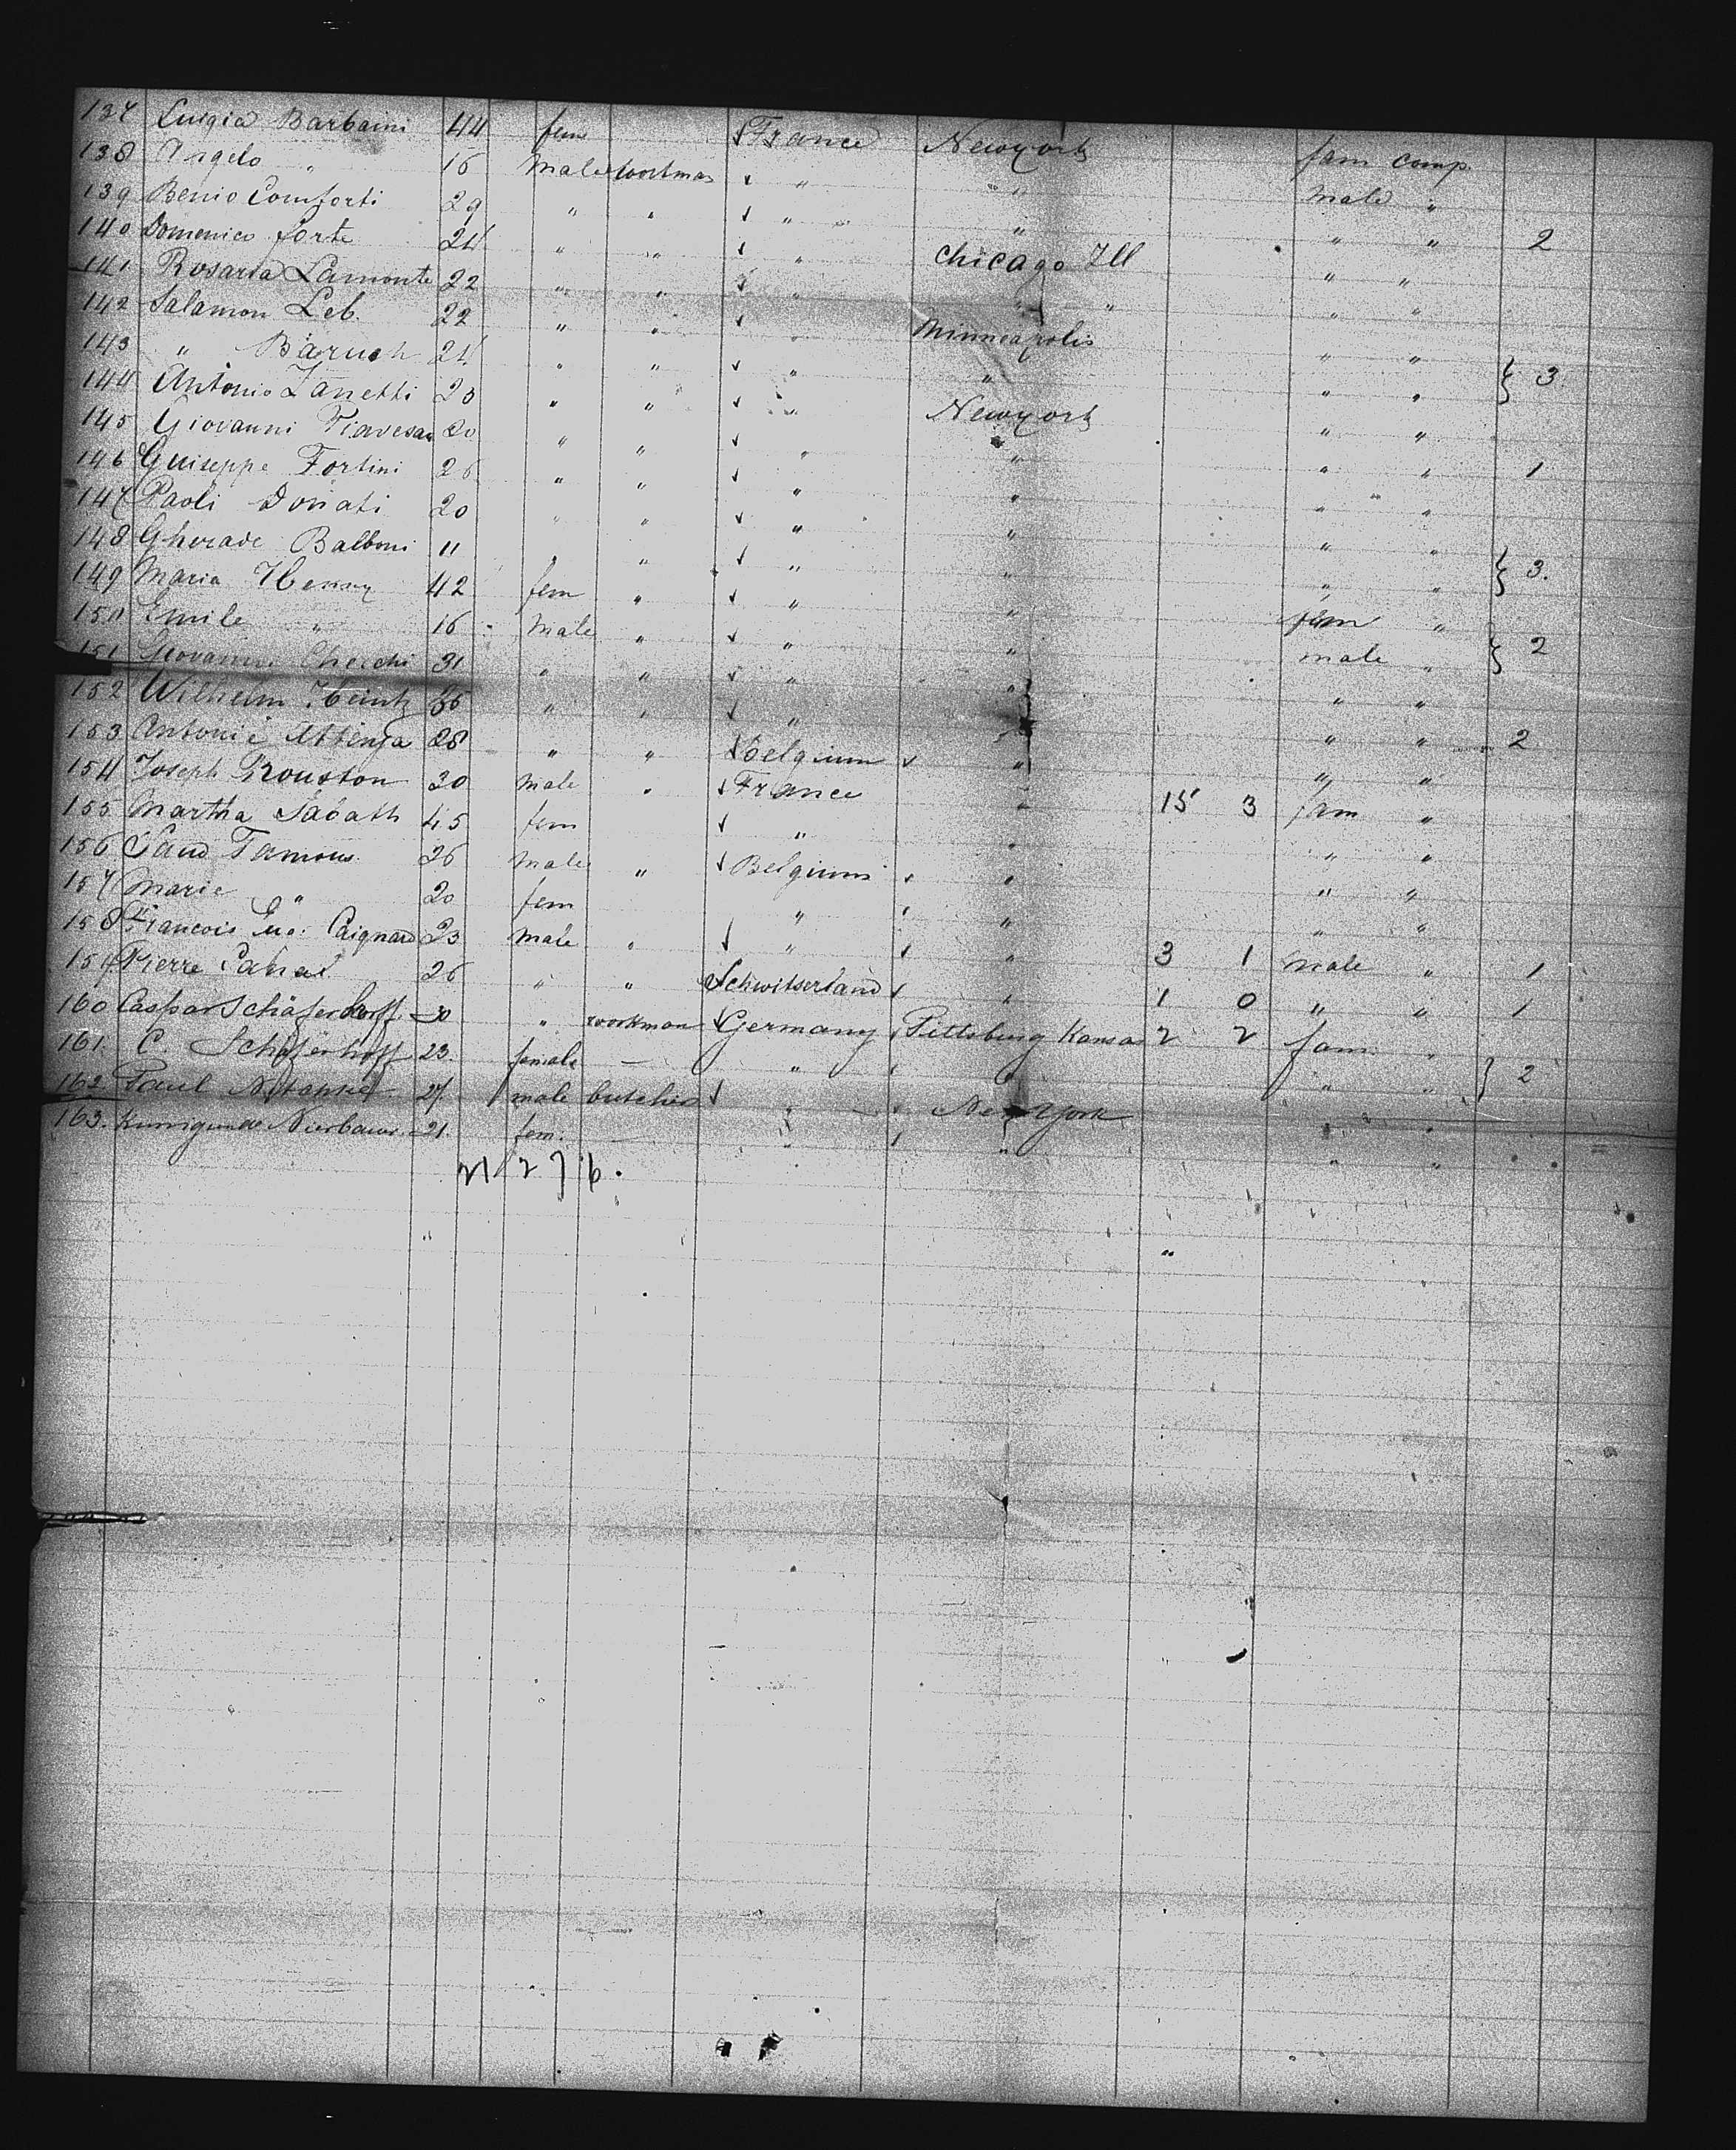 137 Luigia Barbaini 44 fem France Newyork fam comp.
138 Angelo " 16 Male workman " " male "
139 Benio Comforti 29 " " " " " " 2
140 Domenico forte 24 " " " Chicago Ill " "
141 Rosaria Lamonte 22 " " " " " " "
142 Salamon Leb. 22 " " " Minneapolis " "
143 " Baruch 24 " " " " " " } 3
144 Antonio Zanetti 23 " " " Newyork " "
145 Giovanni 20 " " " " " " 1
146 Guiseppe Fortini 26 " " " " " "
147 Paoli Donati 20 " " " " " "
148 Gherade Balboni 11 " " " " " " } 3.
149 Maria Henny 42 fem " " " fem "
150 Emile " 16 Male " " " male " } 2
151 Giovanni Cherchi 31 " " " " " "
152 Wilhelm Heintz 36 " " " " " " 2
153 Antonie 28 " " Belgium " " "
154 Joseph Rouston 30 Male " France " 15 3 fam "
155 Martha Sabath 45 fem " " " "
156 Famous 26 Male " Belgium " " "
157 Marie " 20 fem " " " "
158 Francois Caignard 23 Male " " " 3 1 male " 1
159 Pierre 26 " " Schwitserland " 1 0 " " 1
160 Caspar 30 " workman Germany Pittsburg Kansas 2 2 fam "
161. C Schäferhoff 23. female — " " " " } 2
162 Paul 27. male butcher " New York " "
163. Kunigunde Nierbauer 21. fem. — " " " "